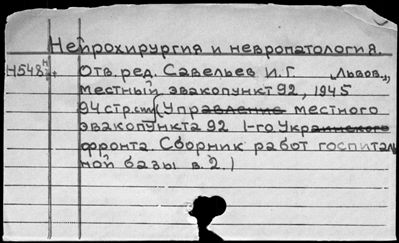 Нейрохирургия и невропатология.
Н548 Отв. ред. Савельев И.Г. Львов.,
местный эвакопункт 92, 1945
94 стр. (Управление местного
эвакопункта 92 1-го Украинского
фронта Сборник работ госпиталь
ной базы в. 2.)